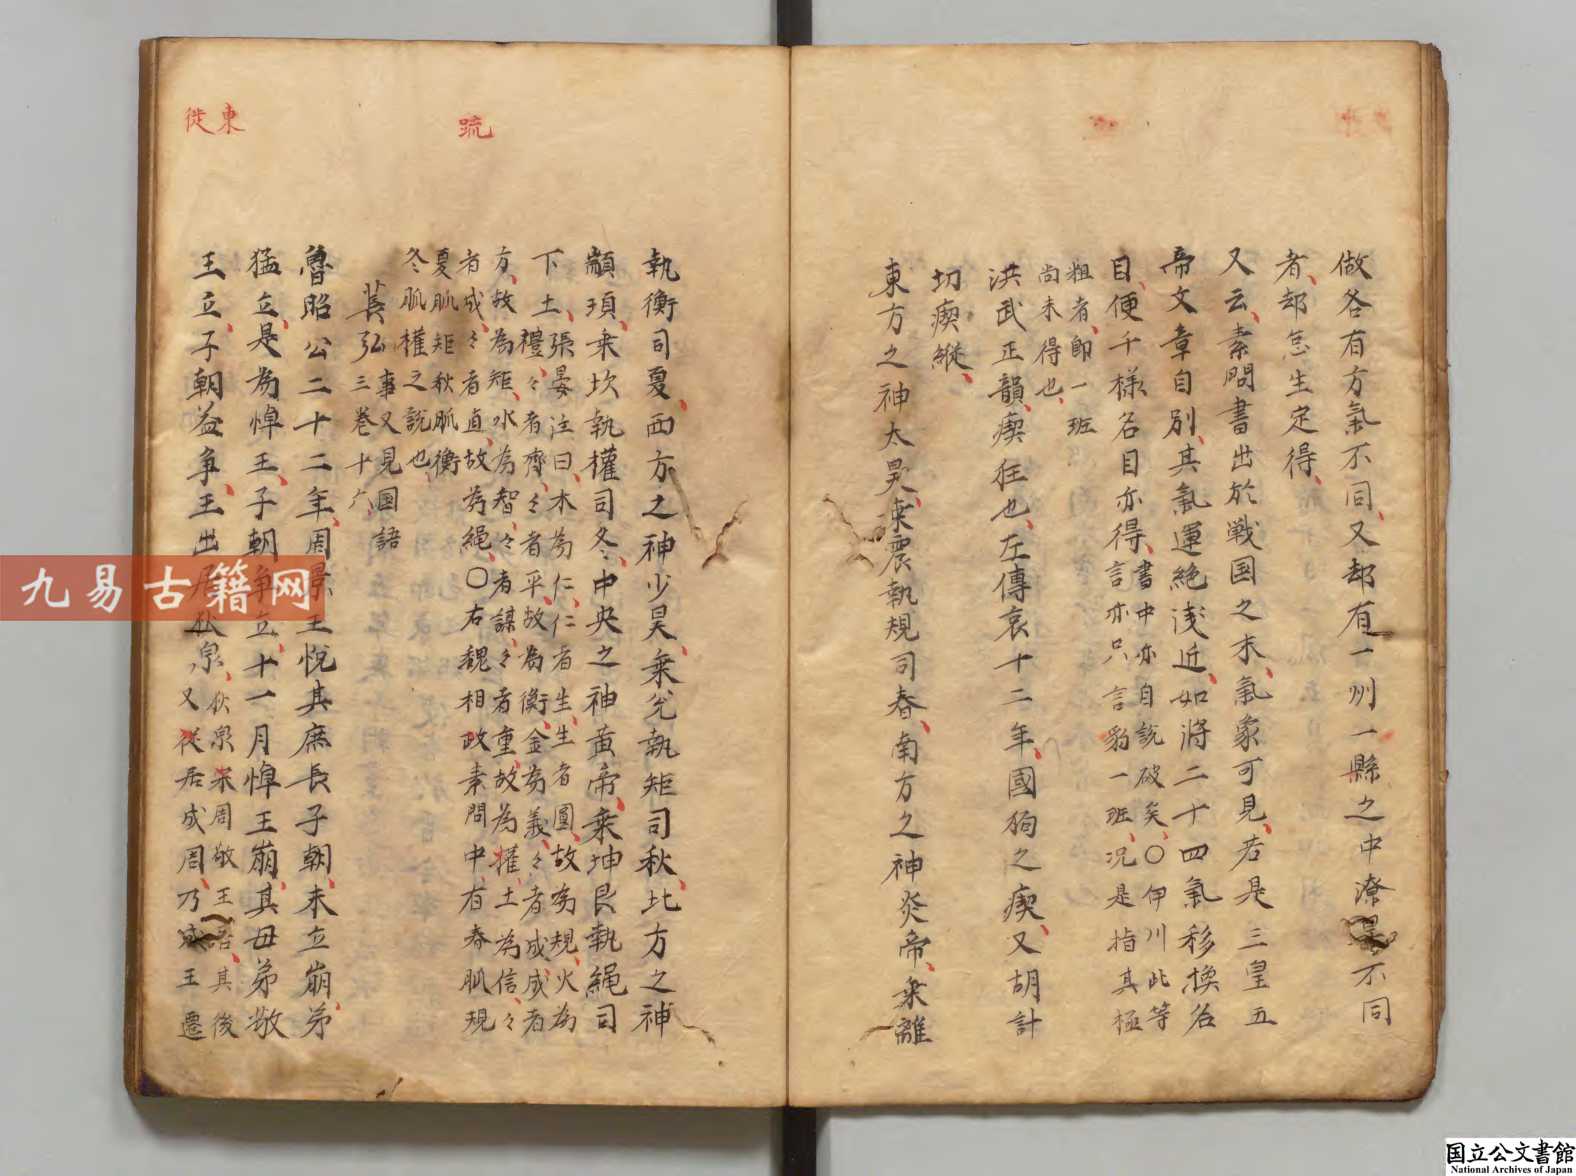 做各有方氣不同又却有一州一縣之中潦旱不同
者却怎生定得
又云素問書出於戦国之末氣象可見若是三皇五
帝文章自別其氣運絶淺近如將二十四氣移換名
目便千様名目亦得書中亦自説破矣〇伊川此等
言亦只言豹一班况是指其極
粗者即一班
尚未得也
洪武正韻瘈狂也左傳哀十二年國狗之瘈又胡計
切瘈縱
東方之神太昊乗震執規司春南方之神炎帝乗離
疏
執衡司夏西方之神少昊乗兌執矩司秋北方之神
顓頊乗坎執權司冬中央之神黄帝乗坤艮執縄司
下土張晏注曰木為仁仁者生生者圓故為規火為
禮禮者齊齊者平故為衡金為義義者成成者
方故為矩水為智智者謀謀者重故為權土為信信
者成成者直故為縄〇右魏相政素問中有春脈規
夏脈矩秋脈衡
冬脈權之説也
萇弘事又見国語
三卷十六
魯昭公二十二年周景王悅其庶長子朝未立崩弟
猛立是為悼王子朝争立十一月悼王崩其母弟敬
王立子朝益争王出居狄泉狄泉宋周敬王語其後
又従居成周乃成王遷
東
徙
九易古籍网
国立公文書館
National Archives of Japan